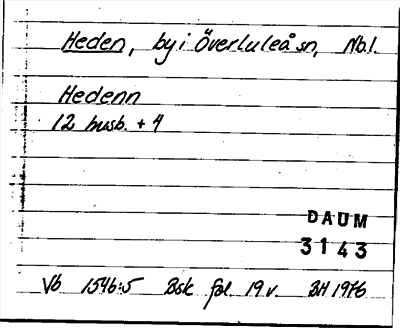 Heden, by i Överluleå sn, Nbl.
Hedenn
12 husb. + 4
DAUM
3143
Vb 1546:5 Bsk fol. 19 v. BH 1976